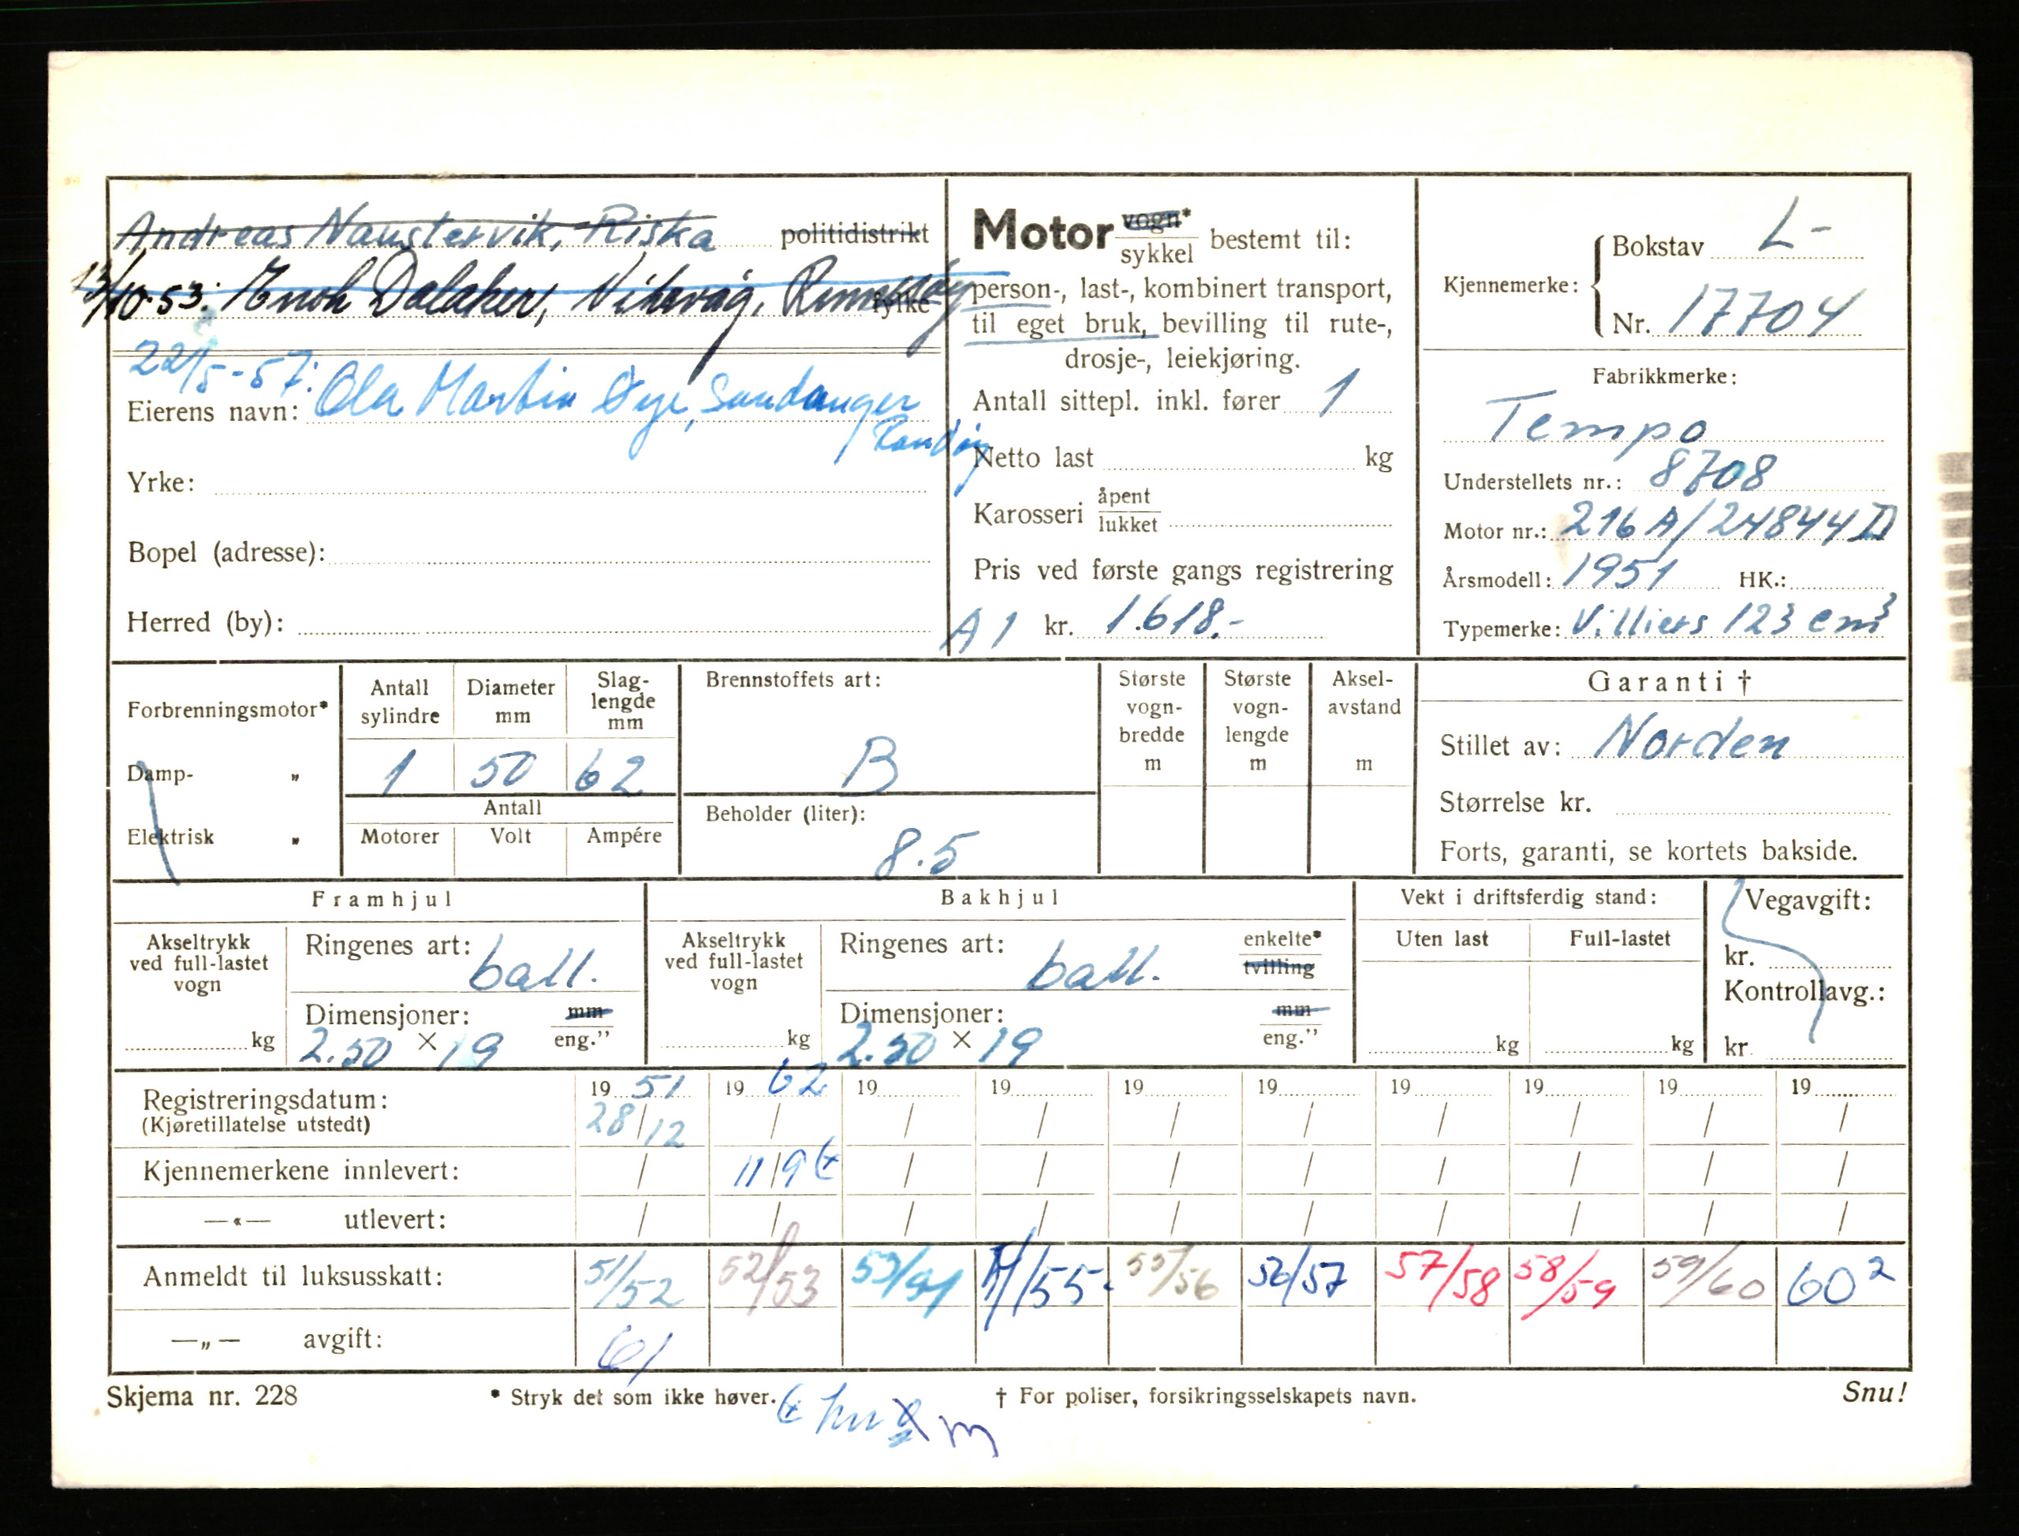 Andreas Naustervik, Riska politidistrikt
13/10-53: Enok Dalaker, Vikevåg, Rennesøy fylke
22/5-57: Ola Martin Øye, Sandanger
Randøy
Eierens navn:
Yrke:
Bopel (adresse):
Herred (by):
Motor vogn* sykkel bestemt til:
person-, last-, kombinert transport,
til eget bruk, bevilling til rute-,
drosje-, leiekjøring.
Antall sittepl. inkl. fører 1
Netto last kg
Karosseri åpent lukket
Pris ved første gangs registrering
A1 kr. 1.618.-
Kjennemerke: Bokstav L-
Nr. 17704
Fabrikkmerke:
Tempo
Understellets nr.: 8708
Motor nr.: 216 A/24844 D
Årsmodell: 1951 HK.:
Typemerke: Villiers 123 cm³
Forbrenningsmotor*
Damp- „
Elektrisk „
Antall sylindre 1
Diameter mm 50
Slag-lengde mm 62
Antall
Motorer Volt Ampére
Brennstoffets art:
B
Beholder (liter):
8.5
Største vogn-bredde m
Største vogn-lengde m
Aksel-avstand m
Garanti †
Stillet av: Norden
Størrelse kr.
Forts, garanti, se kortets bakside.
Framhjul
Akseltrykk ved full-lastet vogn kg
Ringenes art: ball.
Dimensjoner: mm eng.”
2.50 × 19
Bakhjul
Akseltrykk ved full-lastet vogn kg
Ringenes art: ball. enkelte* tvilling
Dimensjoner: mm eng.”
2.50 × 19
Vekt i driftsferdig stand:
Uten last Full-lastet
kg kg
Vegavgift:
kr.
Kontrollavg.:
kr.
19 51 19 62 19 19 19 19 19 19 19 19
Registreringsdatum: 28/12 / / / / / / / / /
(Kjøretillatelse utstedt)
Kjennemerkene innlevert: / 11/9 / / / / / / / /
—«— utlevert: / / / / / / / / / /
Anmeldt til luksusskatt: 51/52 52/53 53/54 /55 55/56 56/57 57/58 58/59 59/60 60 2
—„— avgift: 61
Skjema nr. 228 * Stryk det som ikke høver. † For poliser, forsikringsselskapets navn. Snu!